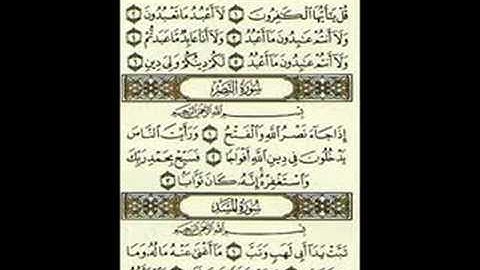 قُلْ يَٰٓأَيُّهَا ٱلْكَٰفِرُونَ ١ لَآ أَعْبُدُ مَا تَعْبُدُونَ ٢
وَلَآ أَنتُمْ عَٰبِدُونَ مَآ أَعْبُدُ ٣ وَلَآ أَنَا۠ عَابِدٌ مَّا عَبَدتُّمْ ٤
وَلَآ أَنتُمْ عَٰبِدُونَ مَآ أَعْبُدُ ٥ لَكُمْ دِينُكُمْ وَلِىَ دِينِ ٦
سُورَةُ النَّصْرِ
بِسْمِ ٱللَّهِ ٱلرَّحْمَٰنِ ٱلرَّحِيمِ
إِذَا جَآءَ نَصْرُ ٱللَّهِ وَٱلْفَتْحُ ١ وَرَأَيْتَ ٱلنَّاسَ
يَدْخُلُونَ فِى دِينِ ٱللَّهِ أَفْوَاجًا ٢ فَسَبِّحْ بِحَمْدِ رَبِّكَ
وَٱسْتَغْفِرْهُ إِنَّهُۥ كَانَ تَوَّابًۢا ٣
سُورَةُ المَسَدِ
بِسْمِ ٱللَّهِ ٱلرَّحْمَٰنِ ٱلرَّحِيمِ
تَبَّتْ يَدَآ أَبِى لَهَبٍ وَتَبَّ ١ مَآ أَغْنَىٰ عَنْهُ مَالُهُۥ وَمَا